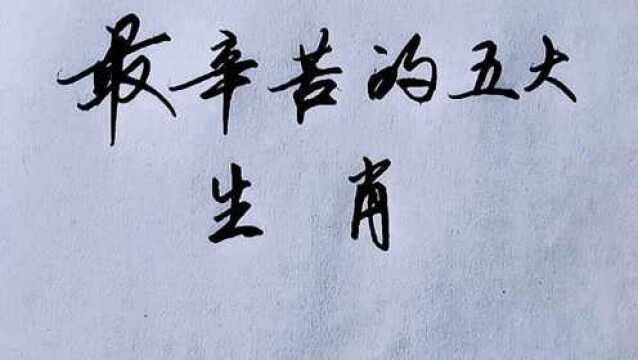 最辛苦的五大
生肖